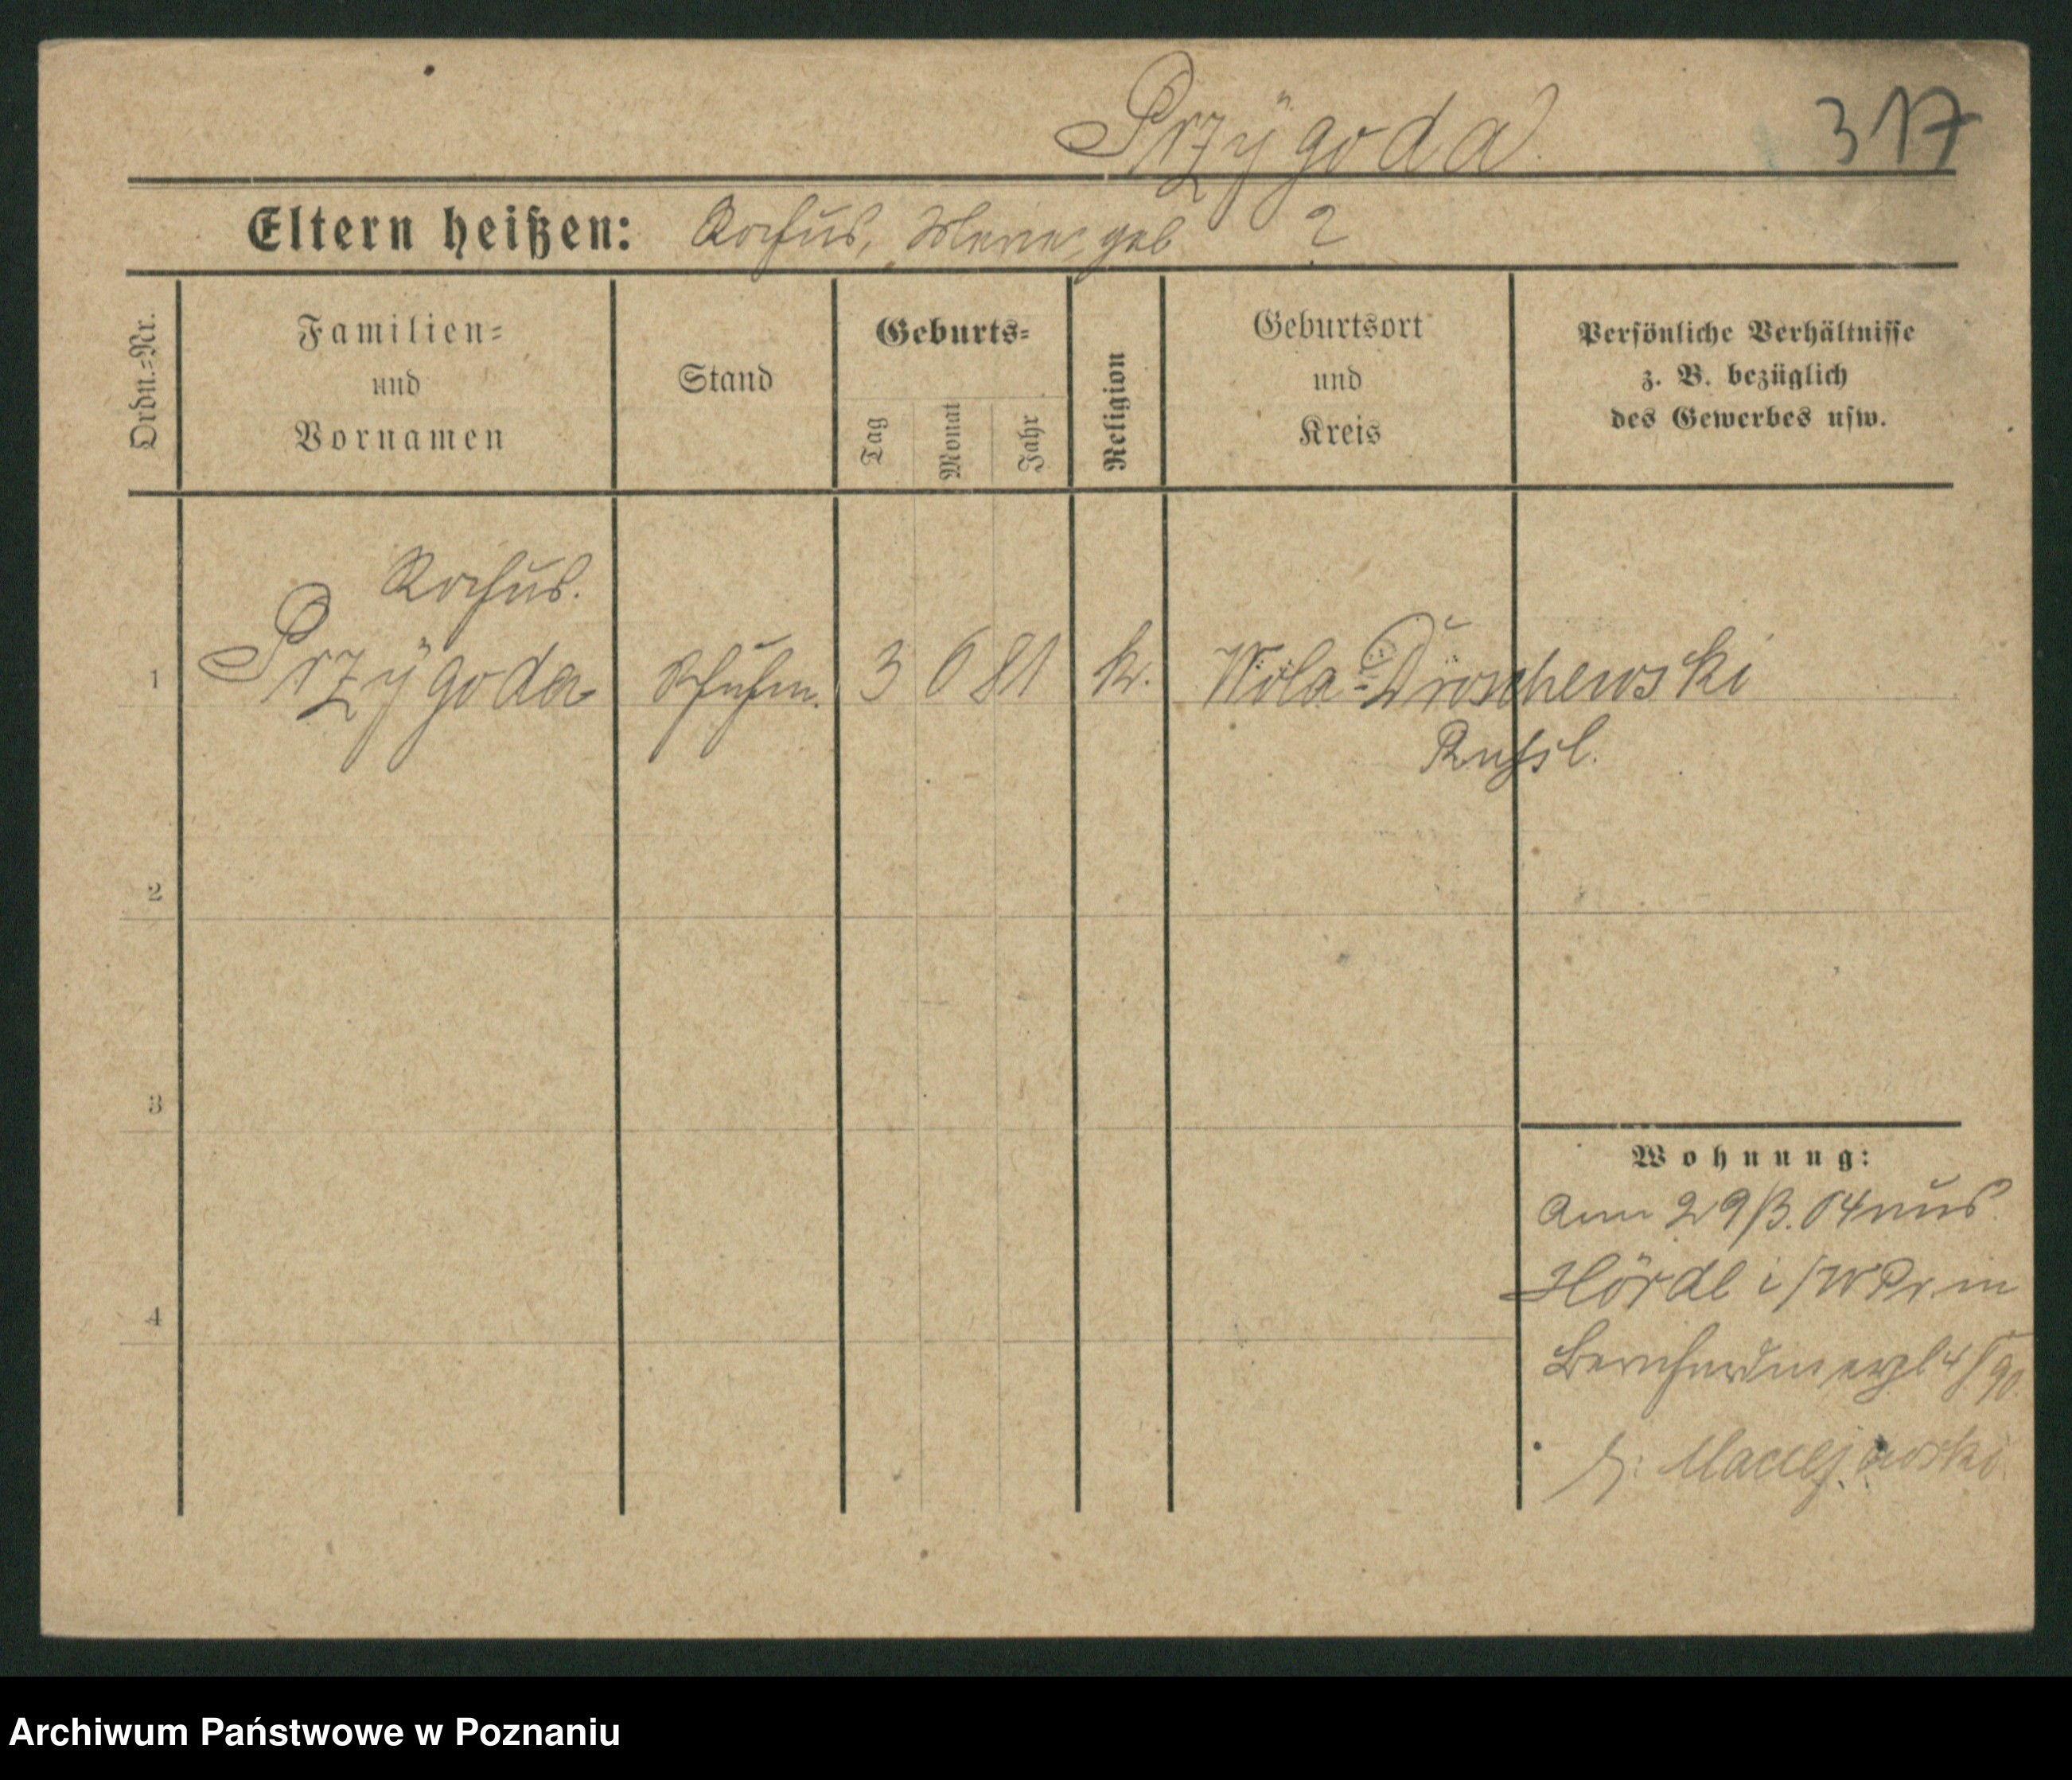 Przÿgoda
317
Eltern heißen: Rochus, Marie geb ?
Ordn.=Nr.
Familien=
und
Vornamen
Stand
Geburts=
Tag
Monat
Jahr
Religion
Geburtsort
und
Kreis
Persönliche Verhältnisse
z. B. bezüglich
des Gewerbes usw.
Rochus.
1 Przÿgoda Schuhm. 3 6 81 k. Wola=Droschewski
Russl.
2
3
Wohnung:
29/3.04 aus
i/W Pr. in
4
Bernhardinerpl 4/
Maciejewski
Archiwum Państwowe w Poznaniu